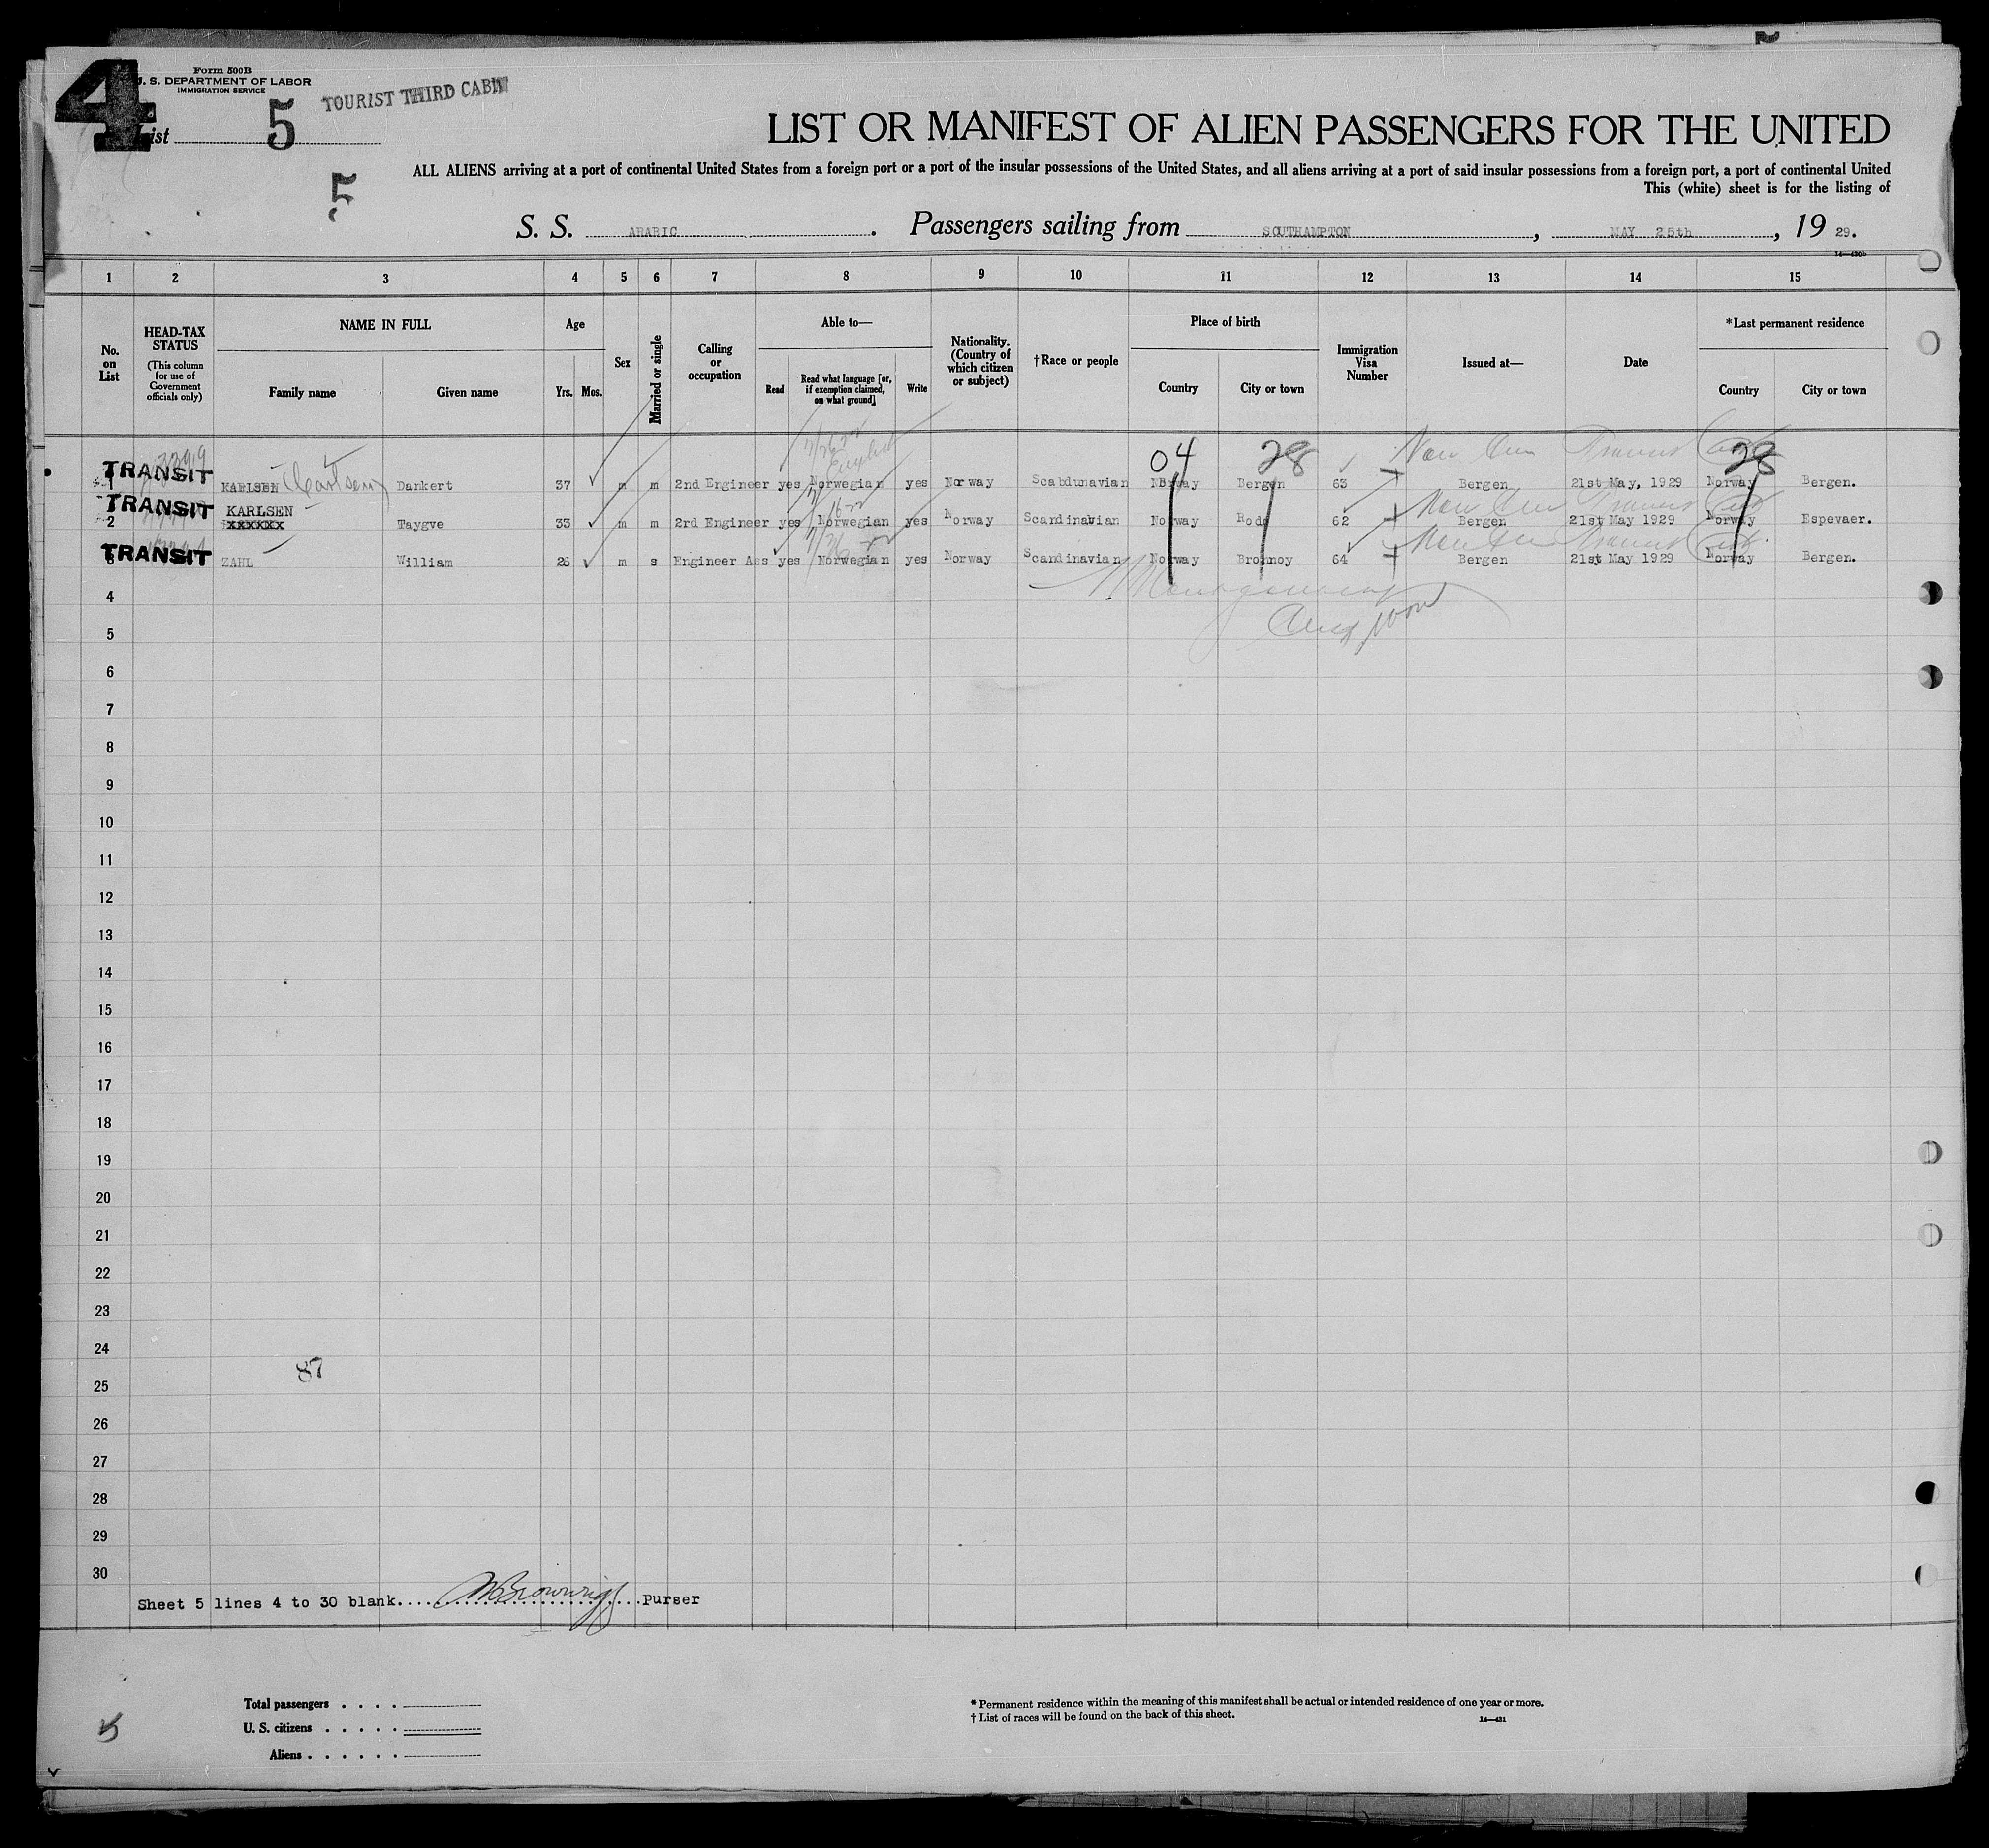 5
4
Form 500B
U. S. DEPARTMENT OF LABOR
IMMIGRATION SERVICE
TOURIST THIRD CABIN
List 5
5
LIST OR MANIFEST OF ALIEN PASSENGERS FOR THE UNITED
ALL ALIENS arriving at a port of continental United States from a foreign port or a port of the insular possessions of the United States, and all aliens arriving at a port of said insular possessions from a foreign port, a port of continental United
This (white) sheet is for the listing of
S. S. ARABIC. Passengers sailing from SOUTHAMPTON, MAY 25th, 19 29.
14—430b
1 2 3 4 5 6 7 8 9 10 11 12 13 14 15
No. on List
HEAD-TAX STATUS
(This column for use of Government officials only)
NAME IN FULL
Family name
Given name
Age
Yrs. Mos.
Sex
Married or single
Calling or occupation
Able to—
Read
Read what language [or, if exemption claimed, on what ground]
Write
Nationality. (Country of which citizen or subject)
†Race or people
Place of birth
Country
City or town
Immigration Visa Number
Issued at—
Date
*Last permanent residence
Country
City or town
04 28 28
English
TRANSIT
1 KARLSEN Carlsen Dankert 37 m m 2nd Engineer yes Norwegian yes Norway Scabdunavian Norway Bergen 63 Bergen 21st May, 1929 Norway Bergen.
TRANSIT KARLSEN
2 xxxxxx Taygve 33 m m 2rd Engineer yes Norwegian yes Norway Scandinavian Norway Rodo 62 Bergen 21st May 1929 Norway Espevaer.
TRANSIT
3 ZAHL William 26 m s Engineer Ass yes Norwegian yes Norway Scandinavian Norway Bronnoy 64 Bergen 21st May 1929 Norway Bergen.
4
5
6
7
8
9
10
11
12
13
14
15
16
17
18
19
20
21
22
23
24
87
25
26
27
28
29
30
Sheet 5 lines 4 to 30 blank. purser
Total passengers
U. S. citizens
Aliens
5
* Permanent residence within the meaning of this manifest shall be actual or intended residence of one year or more.
† List of races will be found on the back of this sheet.
14—431